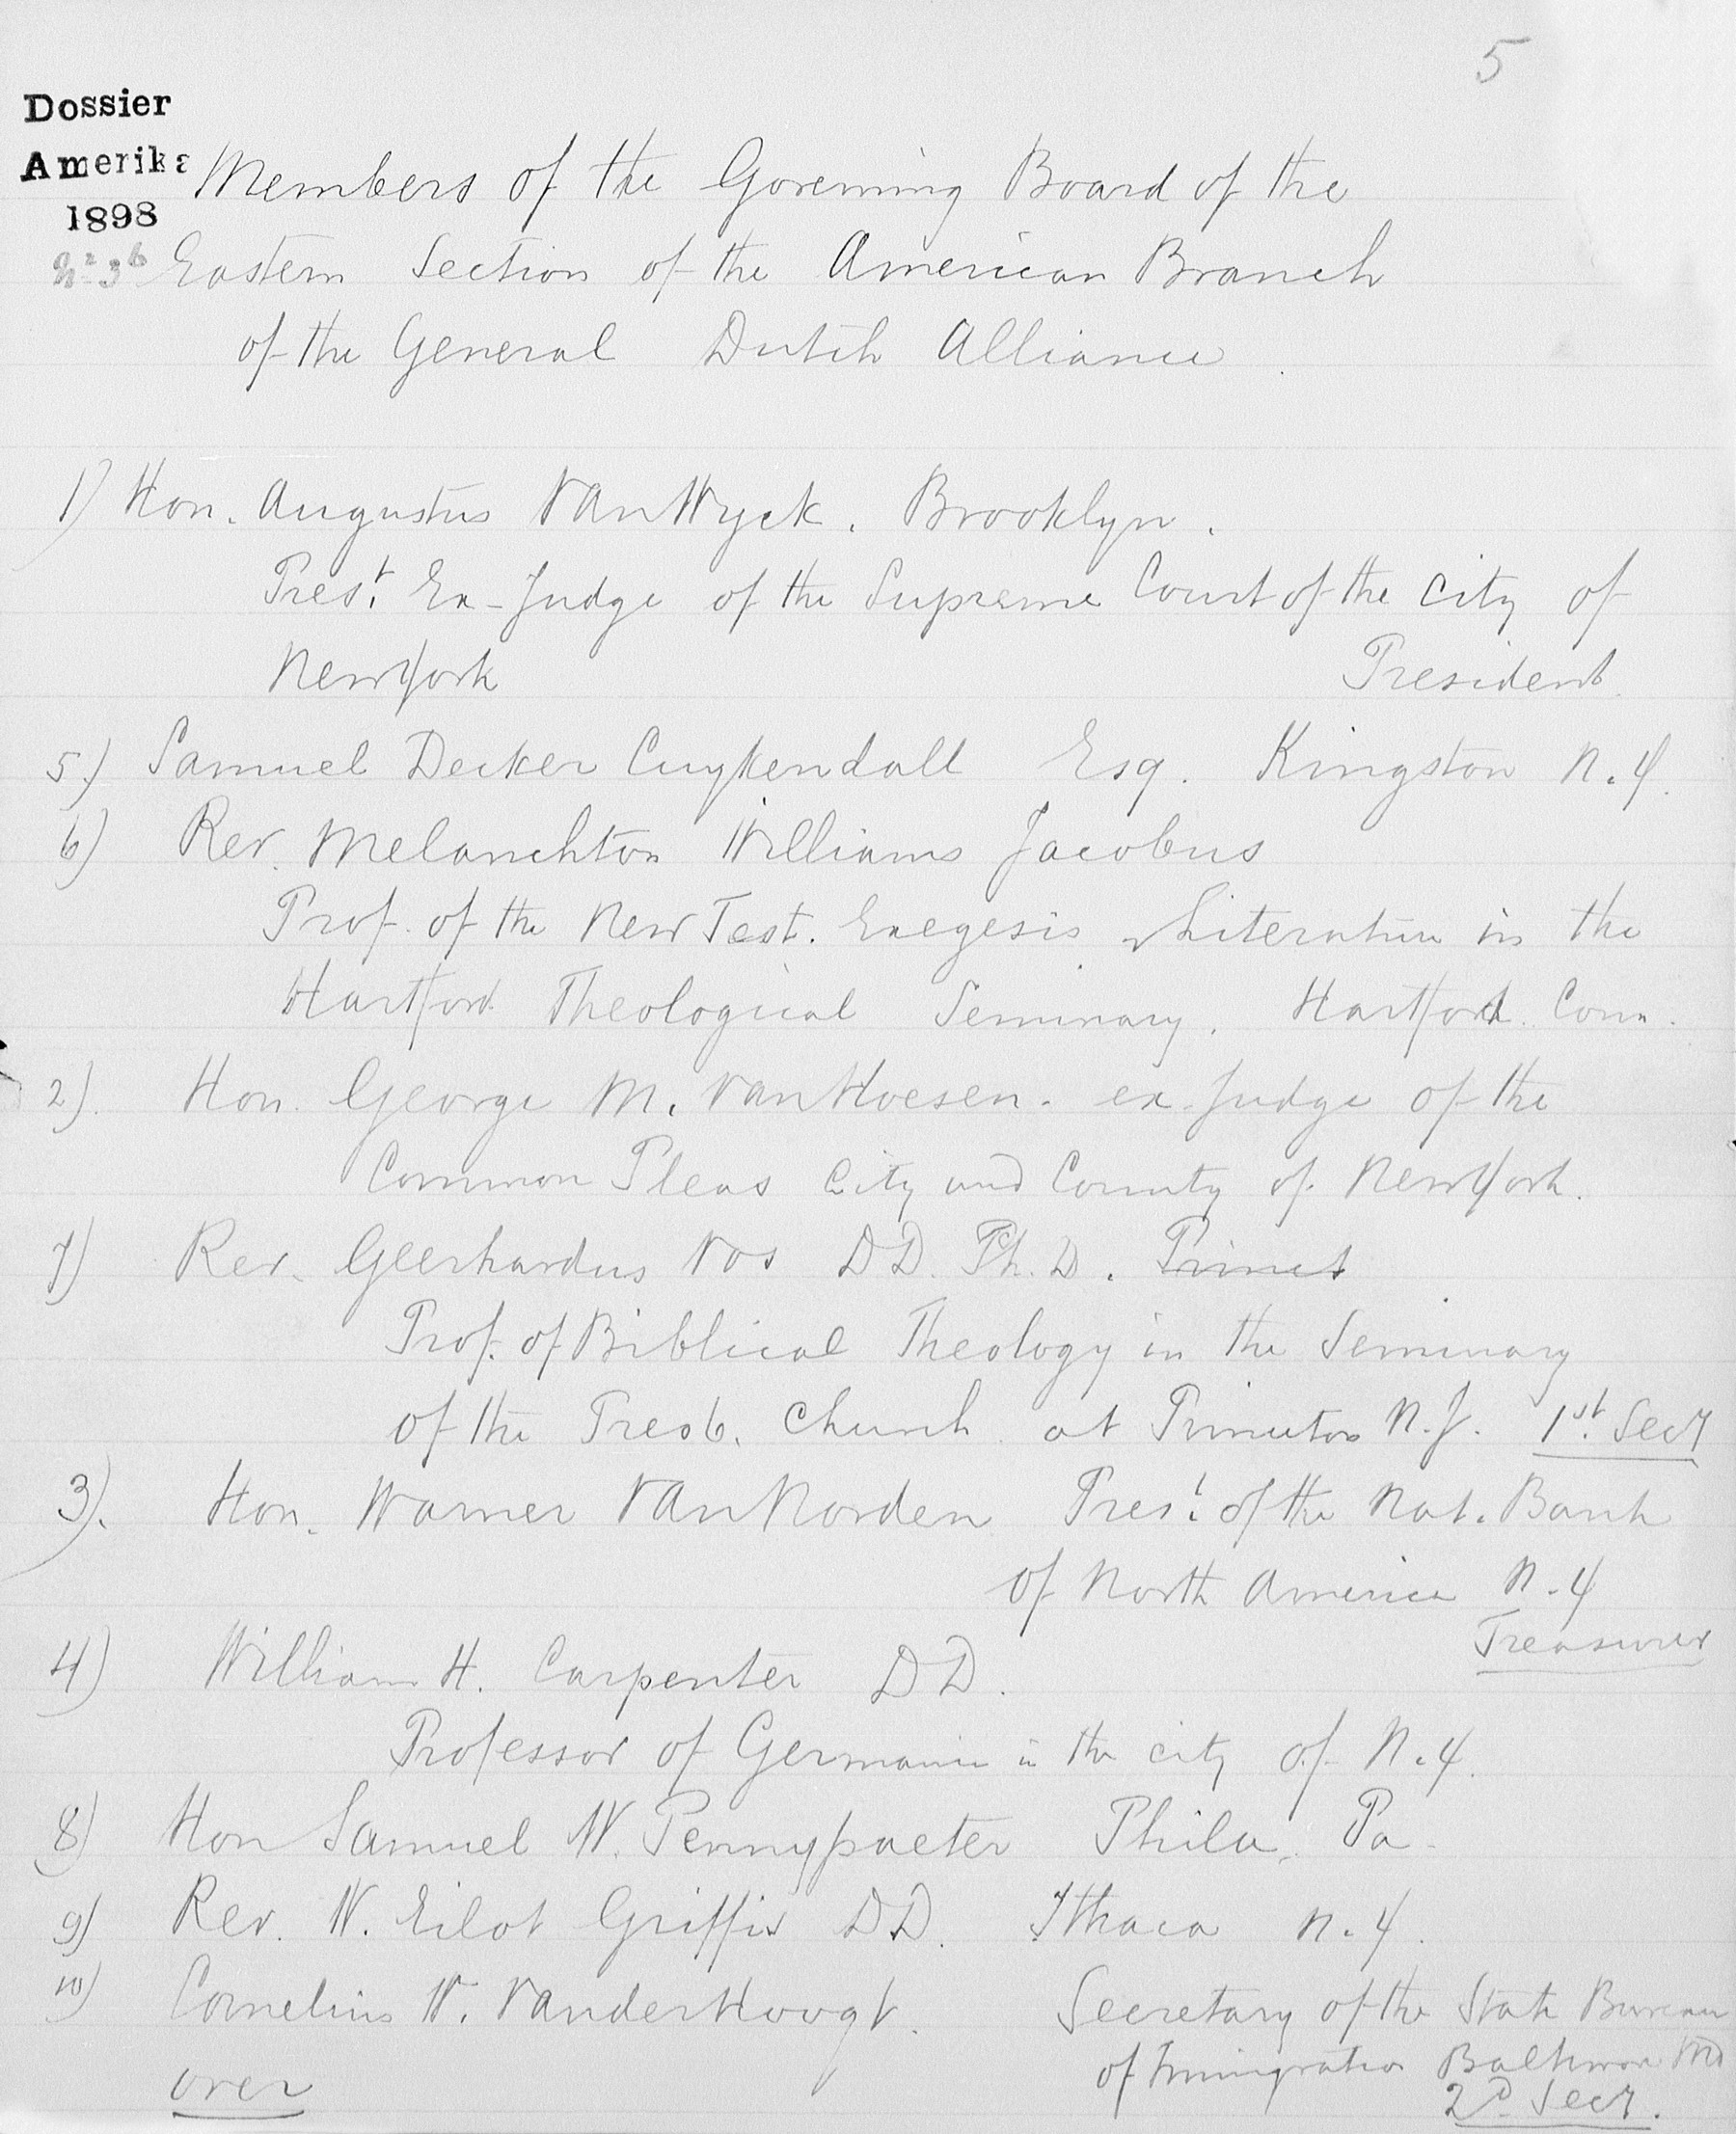 5
Dossier
Amerika
1898
Members of the Governing Board of the
Eastern Section of the American Branch
of the General Dutch Alliance
1) Hon. Augustus VanWyck. Brooklyn.
Prest. Ex-Judge of the Supreme Court of the City of
New York
President
5.) Samuel Decker Cuykendall Esq. Kingston N.Y.
6) Rev. Melanchton Williams Jacobus
Prof. of the New Test. Exegesis & Literature in the
Hartford Theological Seminary. Hartford. Conn.
2). Hon. George M. VanHoesen. ex-Judge of the
Common Pleas City and County of New York.
7) Rev. Geerhardus Vos DD. Ph.D. Princt
Prof. of Biblical Theology in the Seminary
of the Presb. Church at Princeton N.J. 1st. Secy
3). Hon. Warner VanNorden Prest. of the Nat. Bank
of North America N.Y
Treasurer
4) William H. Carpenter DD.
Professor of Germanic in the city of N.Y.
8) Hon Samuel W. Pennypacter Phila. Pa.
9) Rev. W. Eilot Griffis DD. Ithaca N.Y.
10) Cornelius W. VanderHoogt. Secretary of the State Bureau
of Immigration Baltimore Md
over
2d Secy.